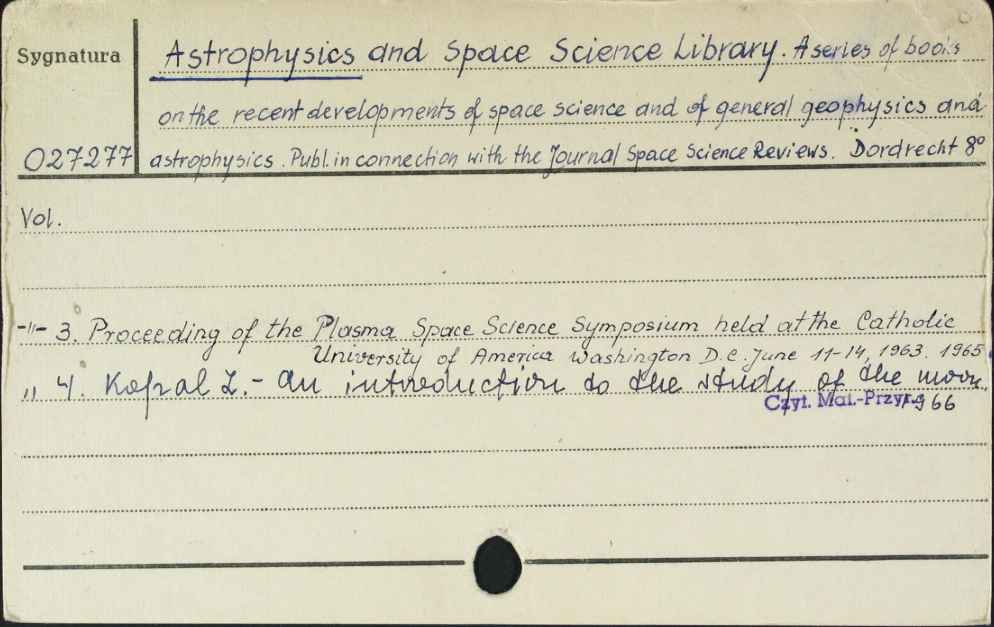 Sygnatura
Astrophysics and Space Science Library. A series of books
on the recent developments of space science and of general geophysics and
027277
astrophysics. Publ. in connection with the Journal Space Science Reviews. Dordrecht 8º
Vol.
-"- 3. Proceeding of the Plasma Space Science Symposium held at the Catholic
University of America Washington D.C. June 11-14, 1963. 1965
" 4. Kopal Z. - An introduction to the study of the moon.
Czyt. Mat.-Przyr.
1966